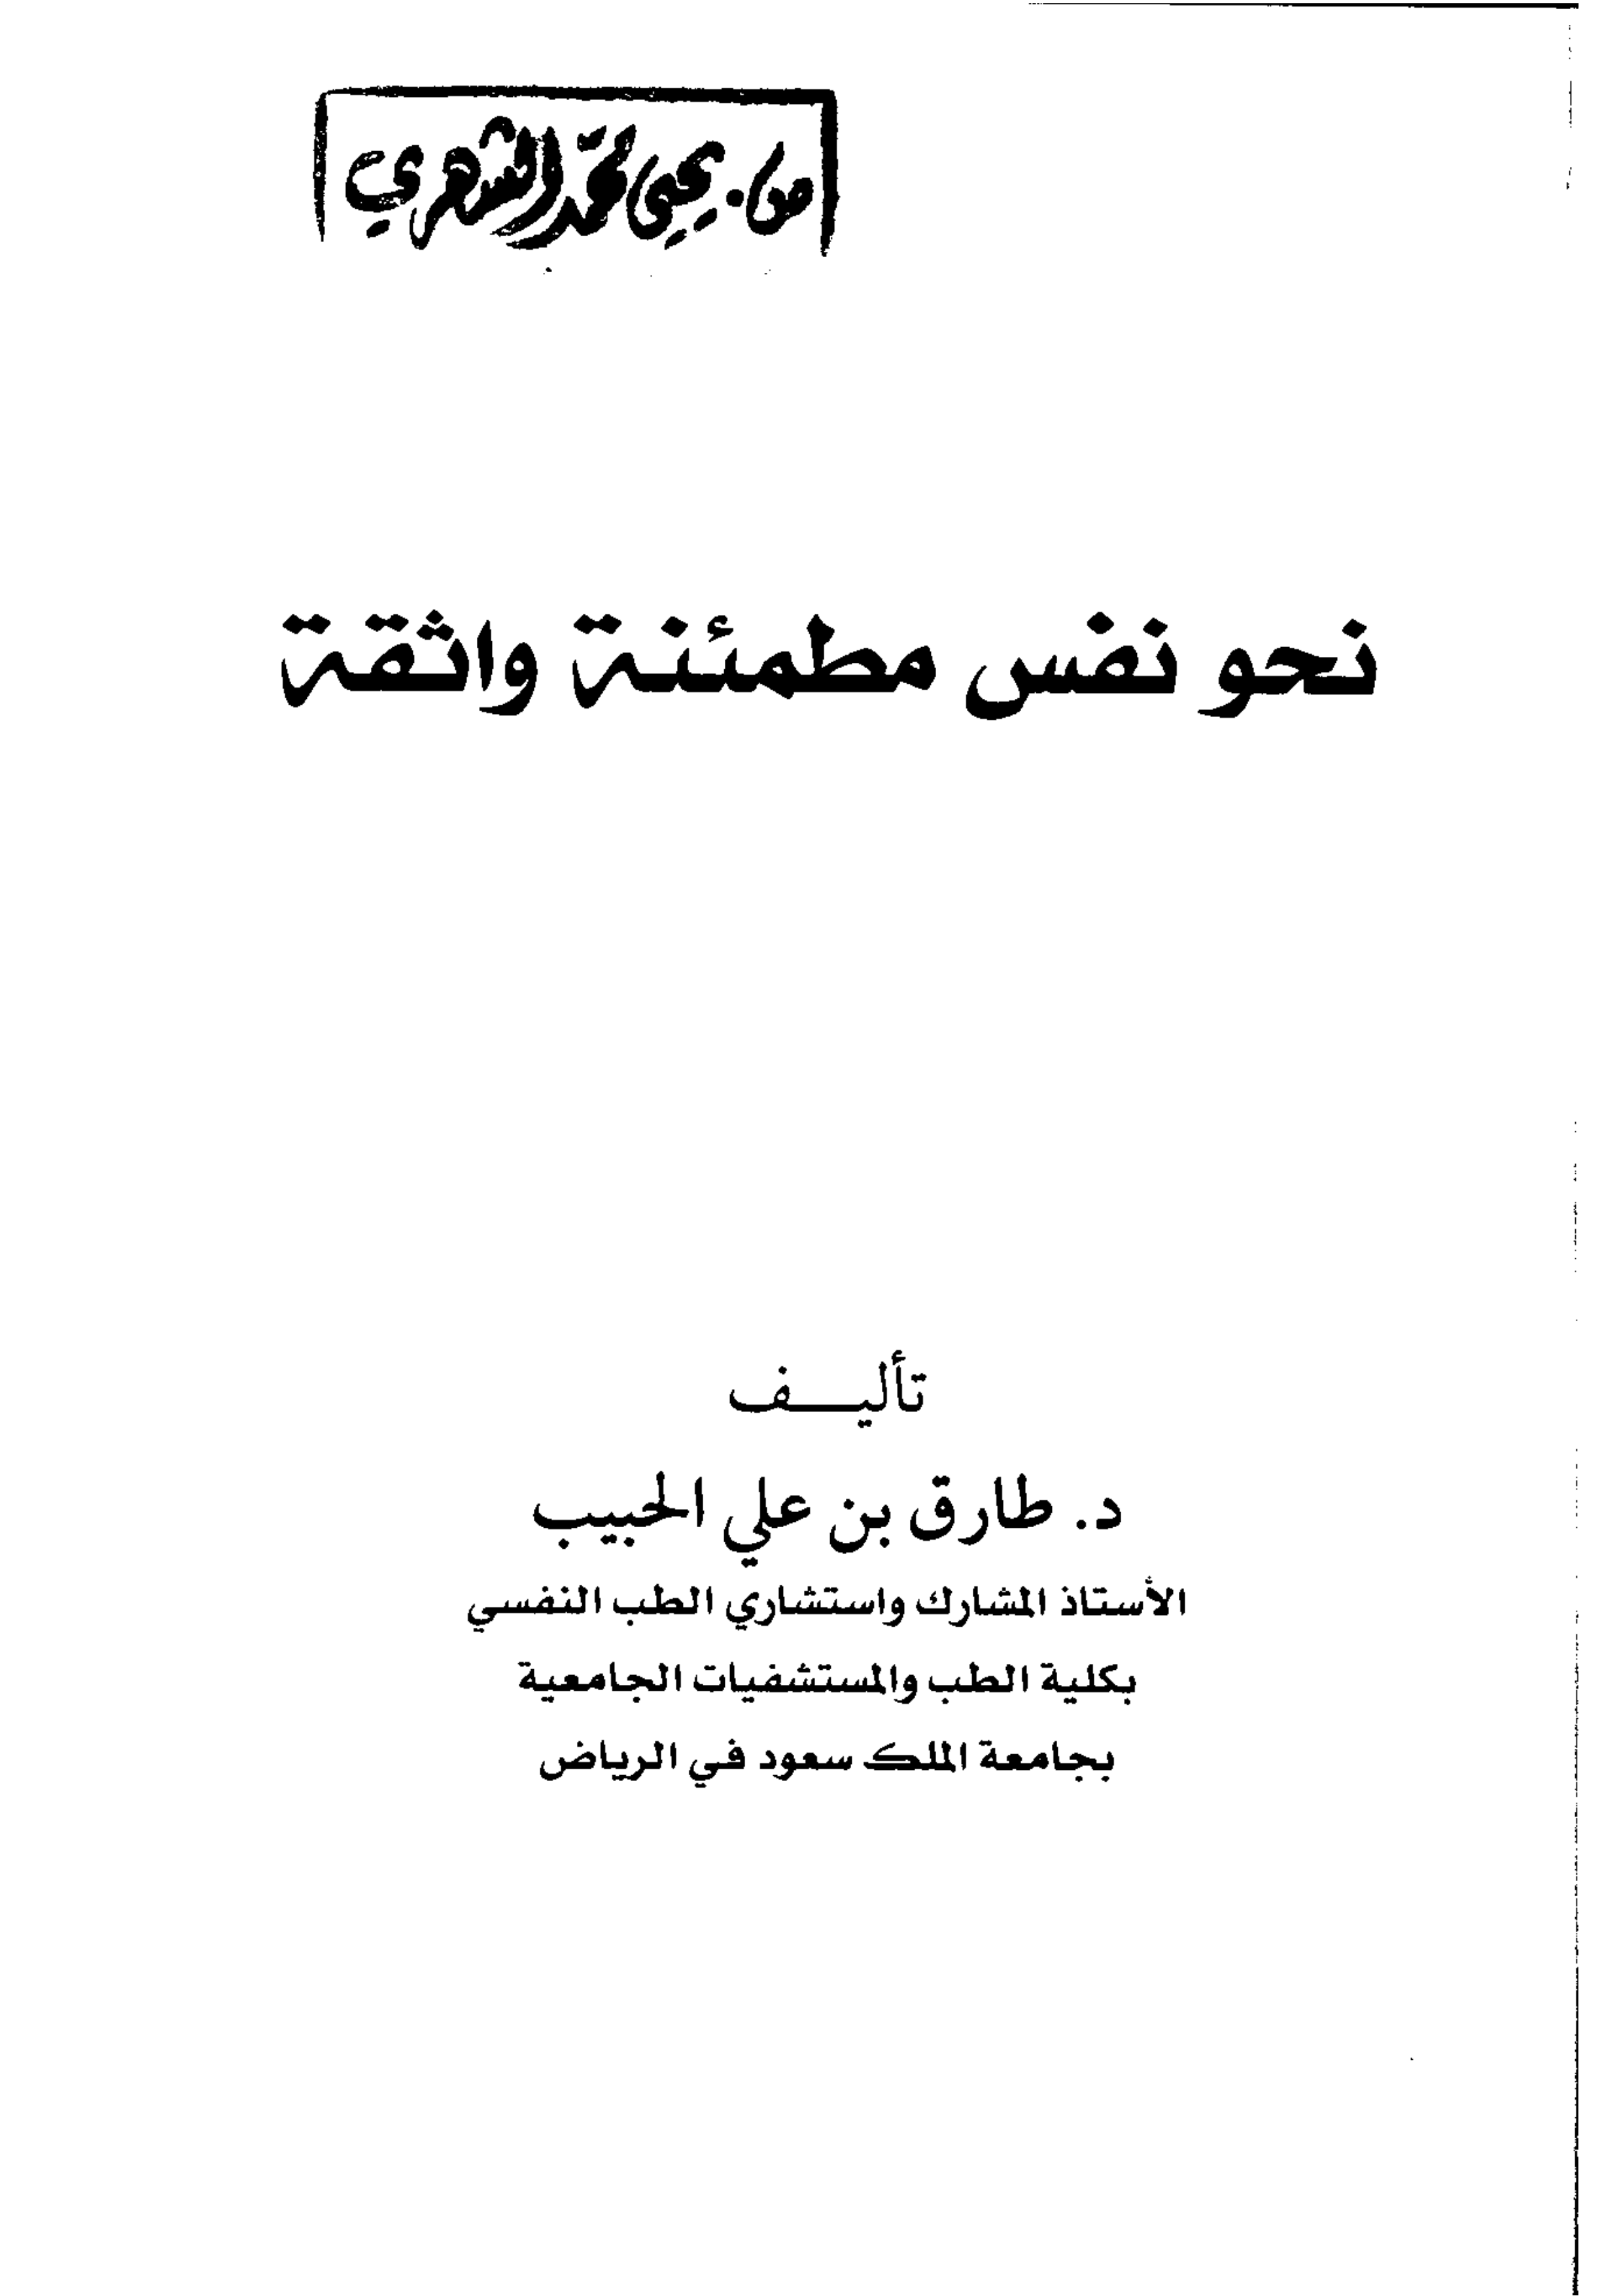 ص/. يحيى محمد الشهري
نحو نفس مطمئنة واثقة
تأليـــف
د. طارق بن علي الحبيب
الأستاذ المشارك واستشاري الطب النفسي
بكلية الطب والمستشفيات الجامعية
بجامعة الملك سعود في الرياض